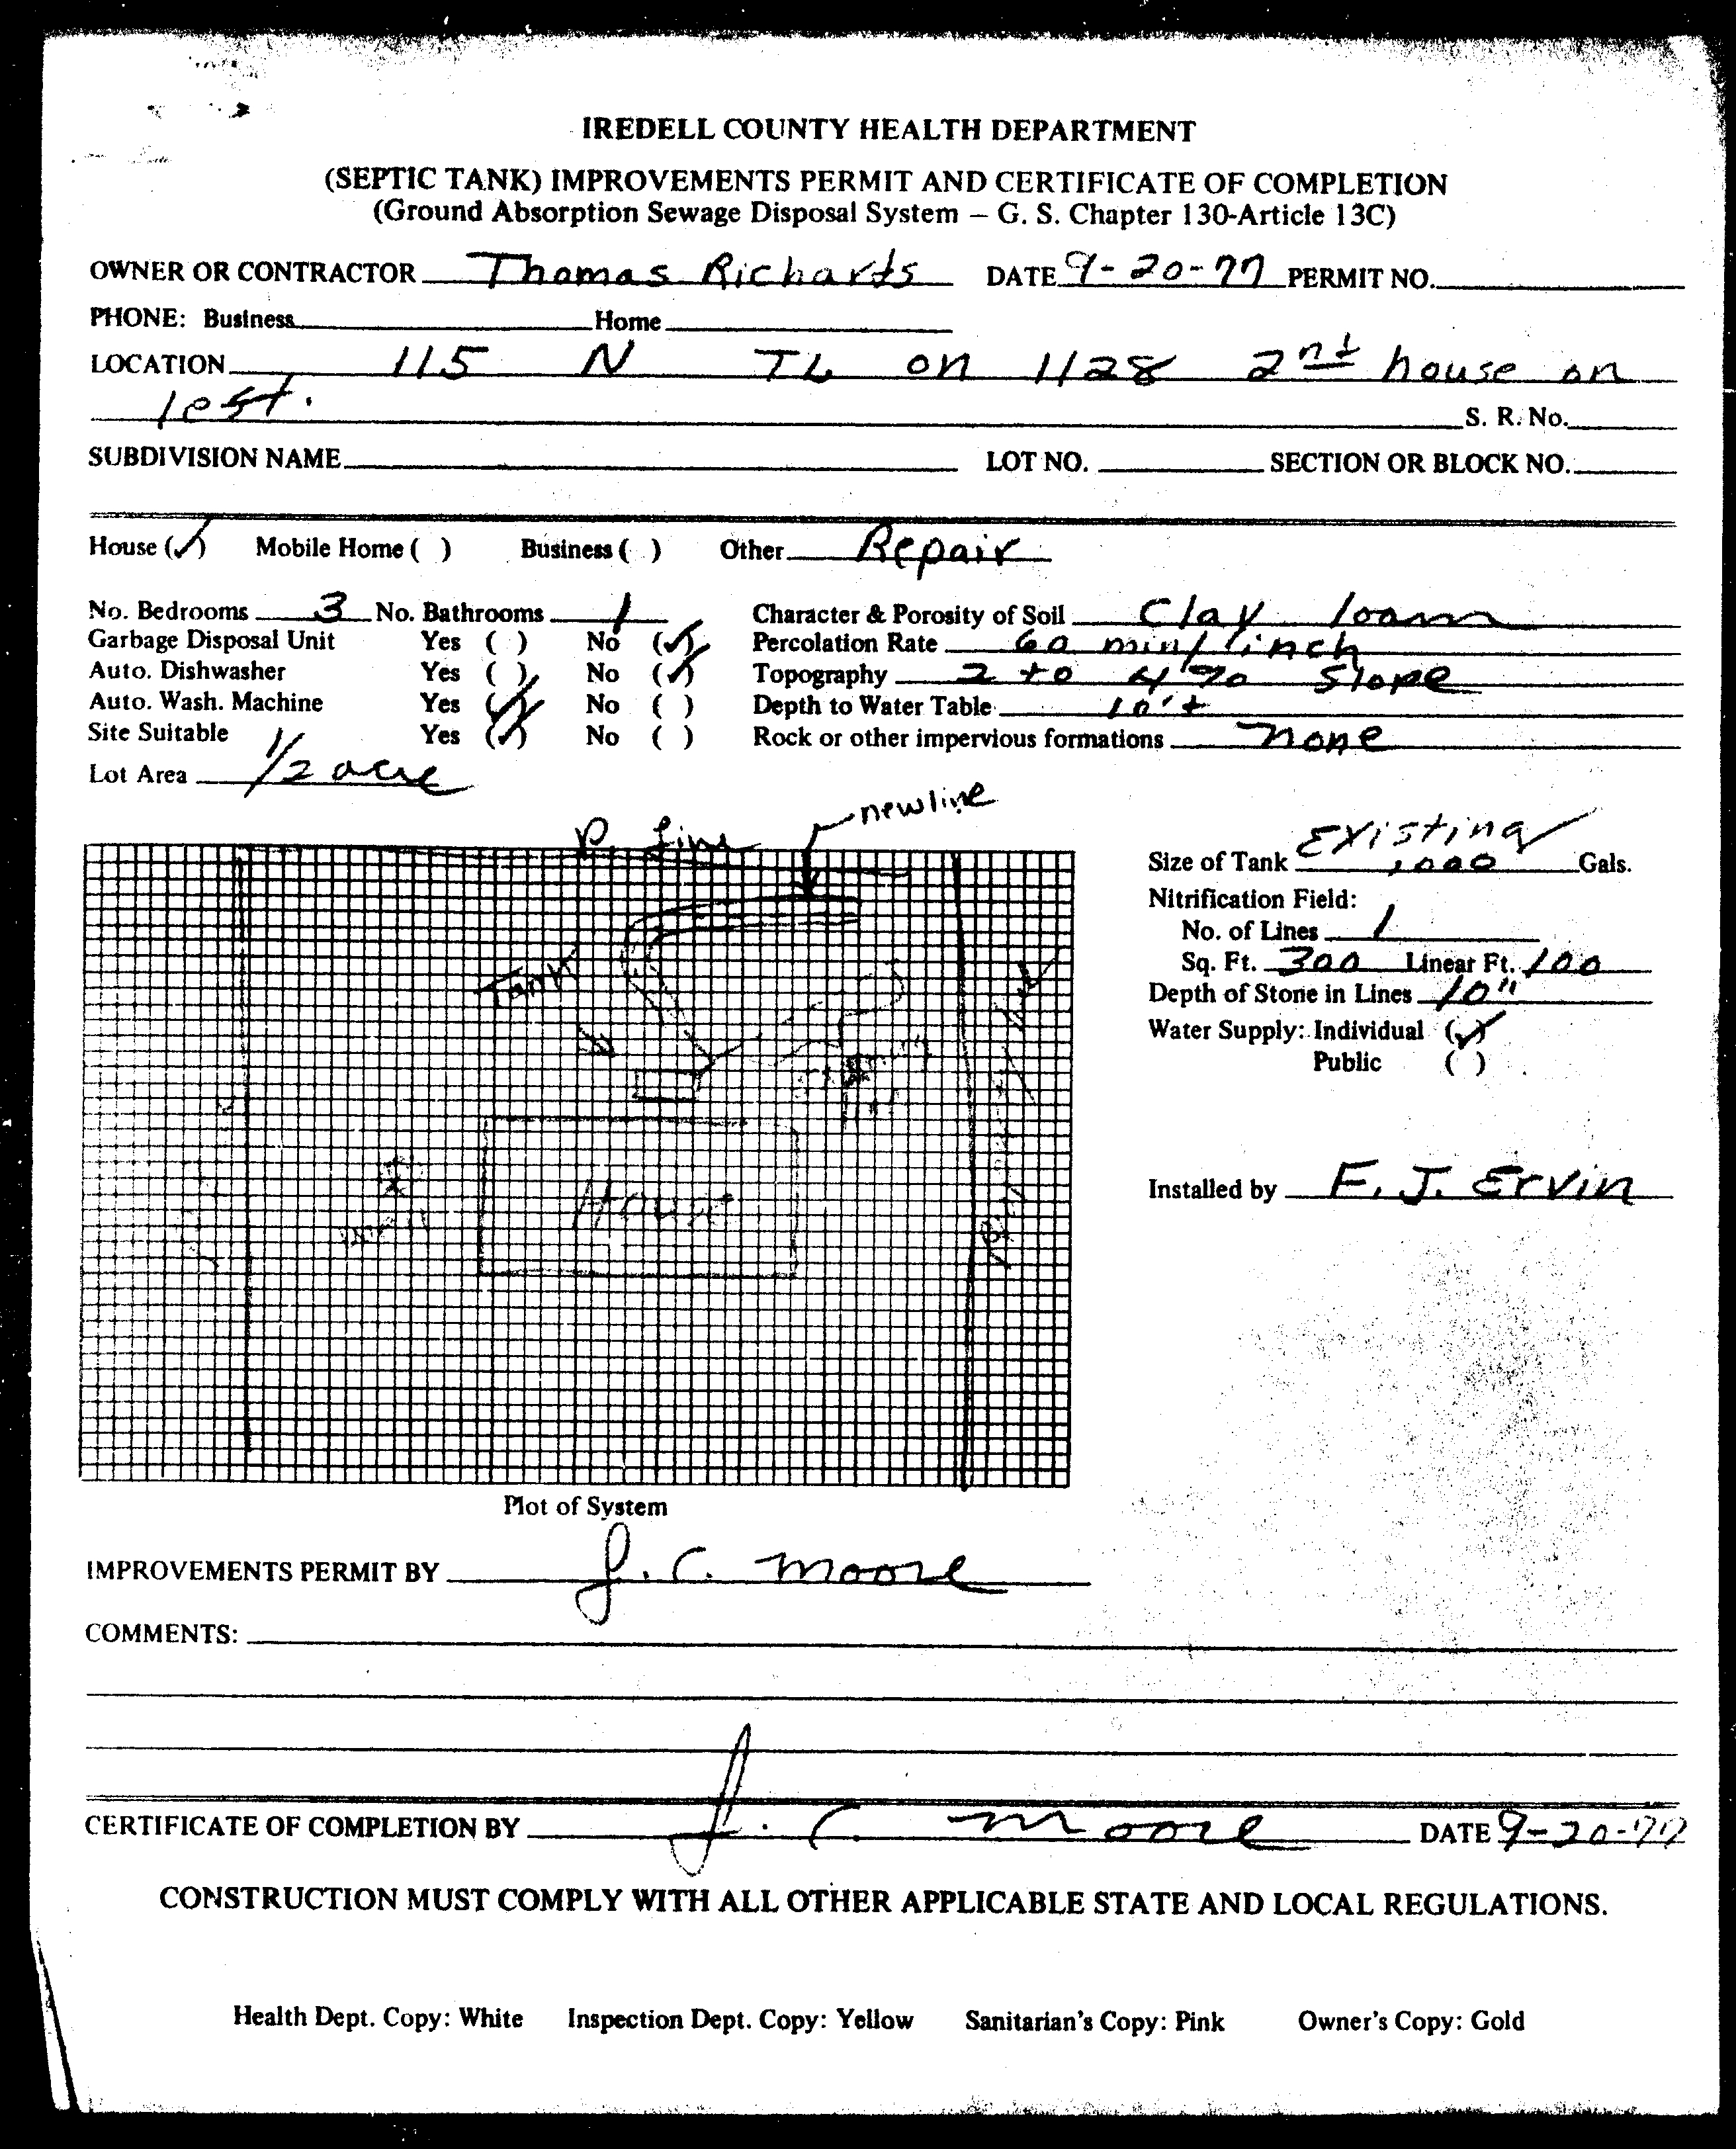 IREDELL COUNTY HEALTH DEPARTMENT
(SEPTIC TANK) IMPROVEMENTS PERMIT AND CERTIFICATE OF COMPLETION
(Ground Absorption Sewage Disposal System – G. S. Chapter 130-Article 13C)
OWNER OR CONTRACTOR Thomas Richards DATE 9-20-77 PERMIT NO.
PHONE: Business Home
LOCATION 115 N TL on 1128 2nd house on
left. S. R. No.
SUBDIVISION NAME LOT NO. SECTION OR BLOCK NO.
House (✓) Mobile Home ( ) Business ( ) Other Repair
No. Bedrooms 3 No. Bathrooms 1 Character & Porosity of Soil Clay loam
Garbage Disposal Unit Yes ( ) No (✓) Percolation Rate 60 min/inch
Auto. Dishwasher Yes ( ) No (✓) Topography 2 to 4% Slope
Auto. Wash. Machine Yes (✓) No ( ) Depth to Water Table 10'+
Site Suitable Yes (✓) No ( ) Rock or other impervious formations none
Lot Area 1/2 acre
new line
P. Line
Existing
Size of Tank 1000 Gals.
Nitrification Field:
No. of Lines 1
Tank
Sq. Ft. 300 Linear Ft. 100
Depth of Stone in Lines 10"
Water Supply: Individual (✓)
Public ( )
House
Installed by F. J. Ervin
Plot of System
IMPROVEMENTS PERMIT BY J. C. Moore
COMMENTS:
CERTIFICATE OF COMPLETION BY J. C. Moore DATE 9-20-77
CONSTRUCTION MUST COMPLY WITH ALL OTHER APPLICABLE STATE AND LOCAL REGULATIONS.
Health Dept. Copy: White Inspection Dept. Copy: Yellow Sanitarian's Copy: Pink Owner's Copy: Gold